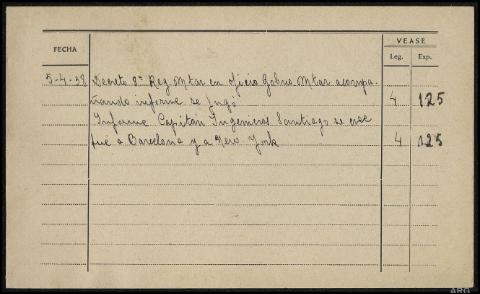 FECHA
VEASE
Leg. Exp.
5-4-38 Decreto 8ª Reg Mtar en oficio Gobno Mtar acompa-
ñando informe se fugó 4 125
Informe Capitán Ingenieros Santiago se cree
fue a Barcelona y a New York 4 125
ARG